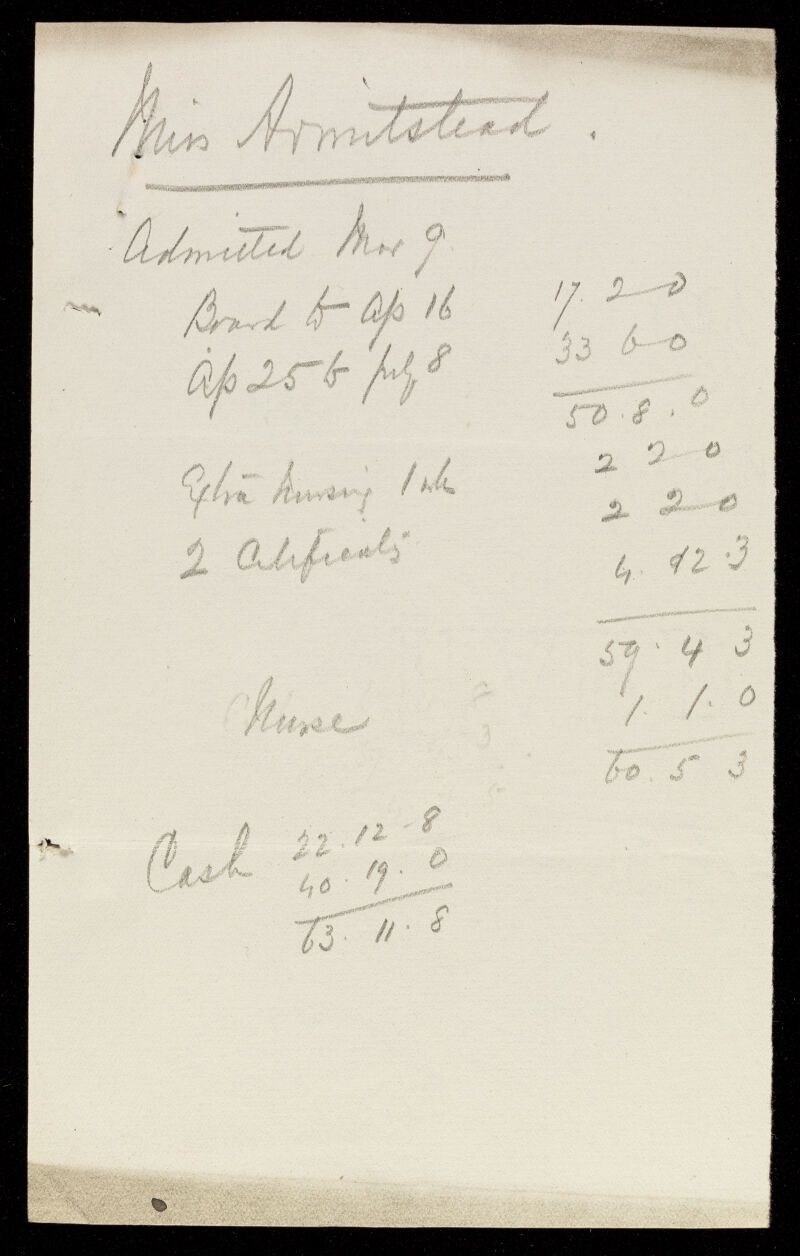 Miss Armitstead.
Admitted Mar 9
Board to Ap 16 17. 2 - 0
Ap 25 to July 8 33 6 - 0
50. 8. 0
Extra Nursing 1 wk 2 2 - 0
2 Certificates 2 2 - 0
4. 12. 3
59. 4 3
Nurse 1. 1. 0
60. 5 3
Cash 22. 12 - 8
40. 19. 0
63. 11. 8